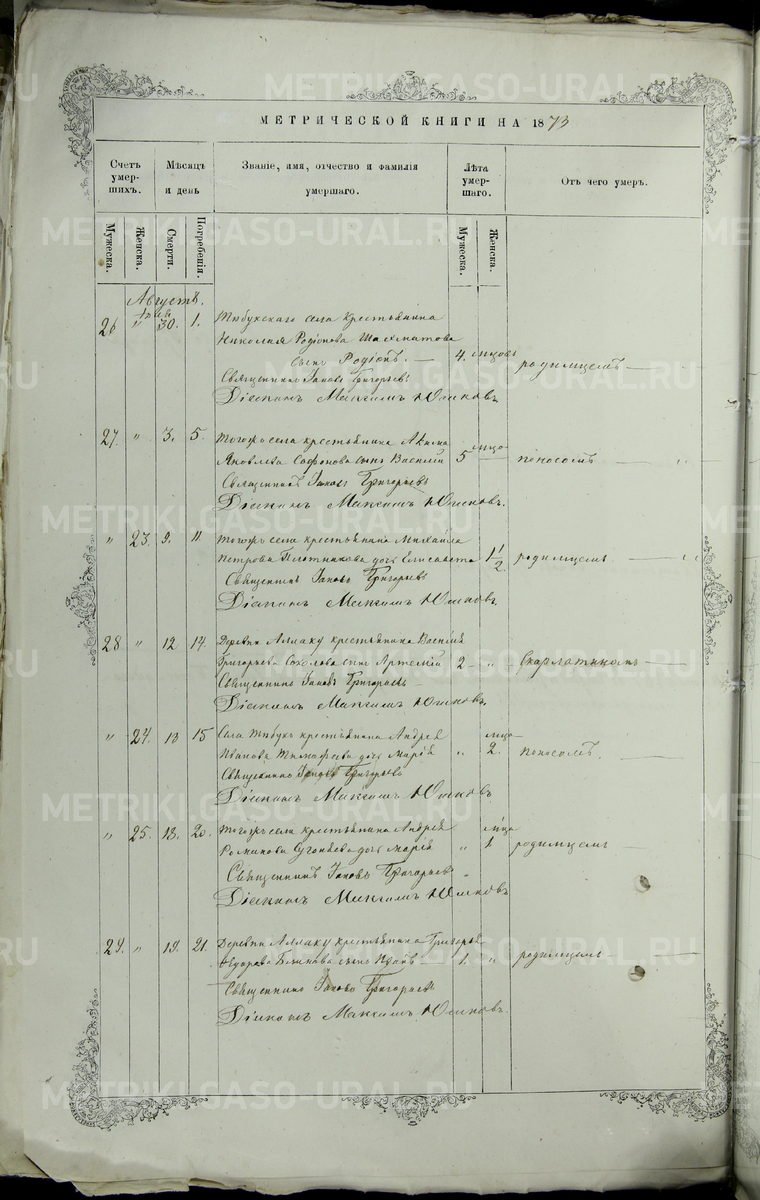 МЕТРИЧЕСКОЙ КНИГИ НА 1873
Счетъ умер-шихъ.
Мѣсяцъ и день
Званіе, имя, отчество и фамилія умершаго.
Лѣта умер-шаго.
Отъ чего умеръ.
Мужеска.
Женска.
Смерти.
Погребенія.
Мужеска.
Женска.
Августъ.
26 " 30. 1. Тюбукскаго села крестьянина
Николая Родіонова Шахматова
сынъ Родіонъ. — 4. мѣцовъ родимцемъ
Священникъ Іаковъ Григорьевъ
Діаконъ Максимъ Юшковъ.
27 " 3. 5. Тогожъ села крестьянина Акима
Яковлева Сафонова сынъ Василій 5 мѣцо поносомъ "
Священникъ Іаковъ Григорьевъ
Діаконъ Максимъ Юшковъ.
" 23. 9. 11. Тогожъ села крестьянина Михаила
Петрова Плотникова дочь Елисавета 1 1/2 родимцемъ "
Священникъ Іаковъ Григорьевъ
Діаконъ Максимъ Юшковъ.
28 " 12 14. Деревни Аллаку крестьянина Василія
Григорьева Соколова сынъ Артемій 2 " Скарлатиномъ
Священникъ Іаковъ Григорьевъ
Діаконъ Максимъ Юшковъ.
" 24. 13 15 Села Тюбукъ крестьянина Андрея
Иванова Тимофеева дочь Марія " 2. мѣцо поносомъ.
Священникъ Іаковъ Григорьевъ
Діаконъ Максимъ Юшковъ
" 25. 18. 20. Тогожъ села крестьянина Андрея
Романова дочь Марія " 1 мѣцо родимцемъ
Священникъ Іаковъ Григорьевъ
Діаконъ Максимъ Юшковъ
29. " 19. 21. Деревни Аллаку крестьянина Григорья
Ѳедорова сынъ 1. " родимцемъ
Священникъ Іаковъ Григорьевъ
Діаконъ Максимъ Юшковъ.
METRIKI.GASO-URAL.RU